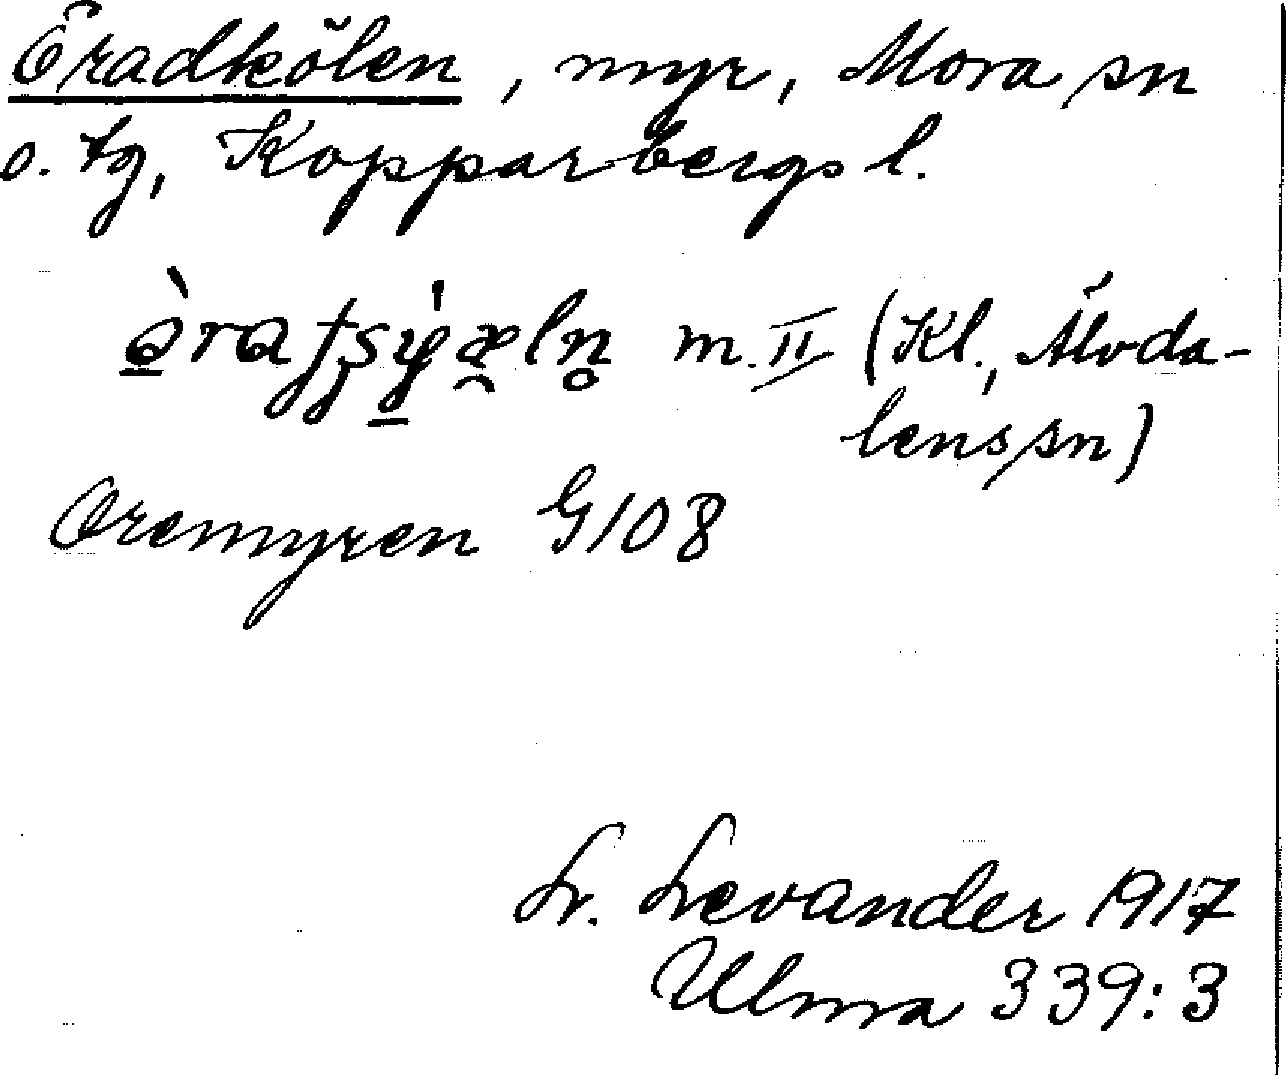 Öradkölen, myr, Mora sn
o. tg, Kopparbergs l.
m. II (Kl., Älvda-
lens sn)
Oremyren G108
L. Levander 1917
Ulma 339:3